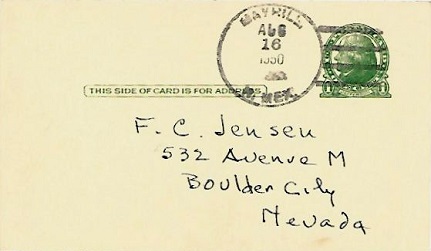 MAYHILL
AUG
16
1950
N. MEX.
THIS SIDE OF CARD IS FOR ADDRESS
F. C. Jensen
532 Avenue M
Boulder City
Nevada